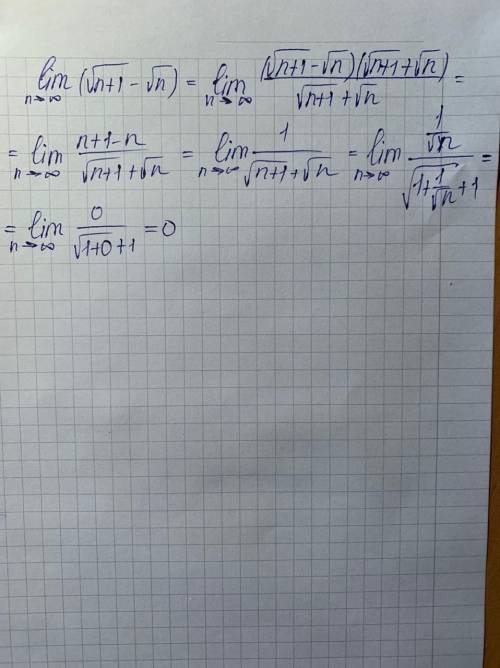 lim n→∞ (√(n+1) - √n) = lim n→∞ ((√(n+1) - √n)(√(n+1) + √n))/(√(n+1) + √n) =
= lim n→∞ (n+1-n)/(√(n+1) + √n) = lim n→∞ 1/(√(n+1) + √n) = lim n→∞ (1/√n)/(√(1+1/√n) + 1) =
= lim n→∞ 0/(√(1+0) + 1) = 0